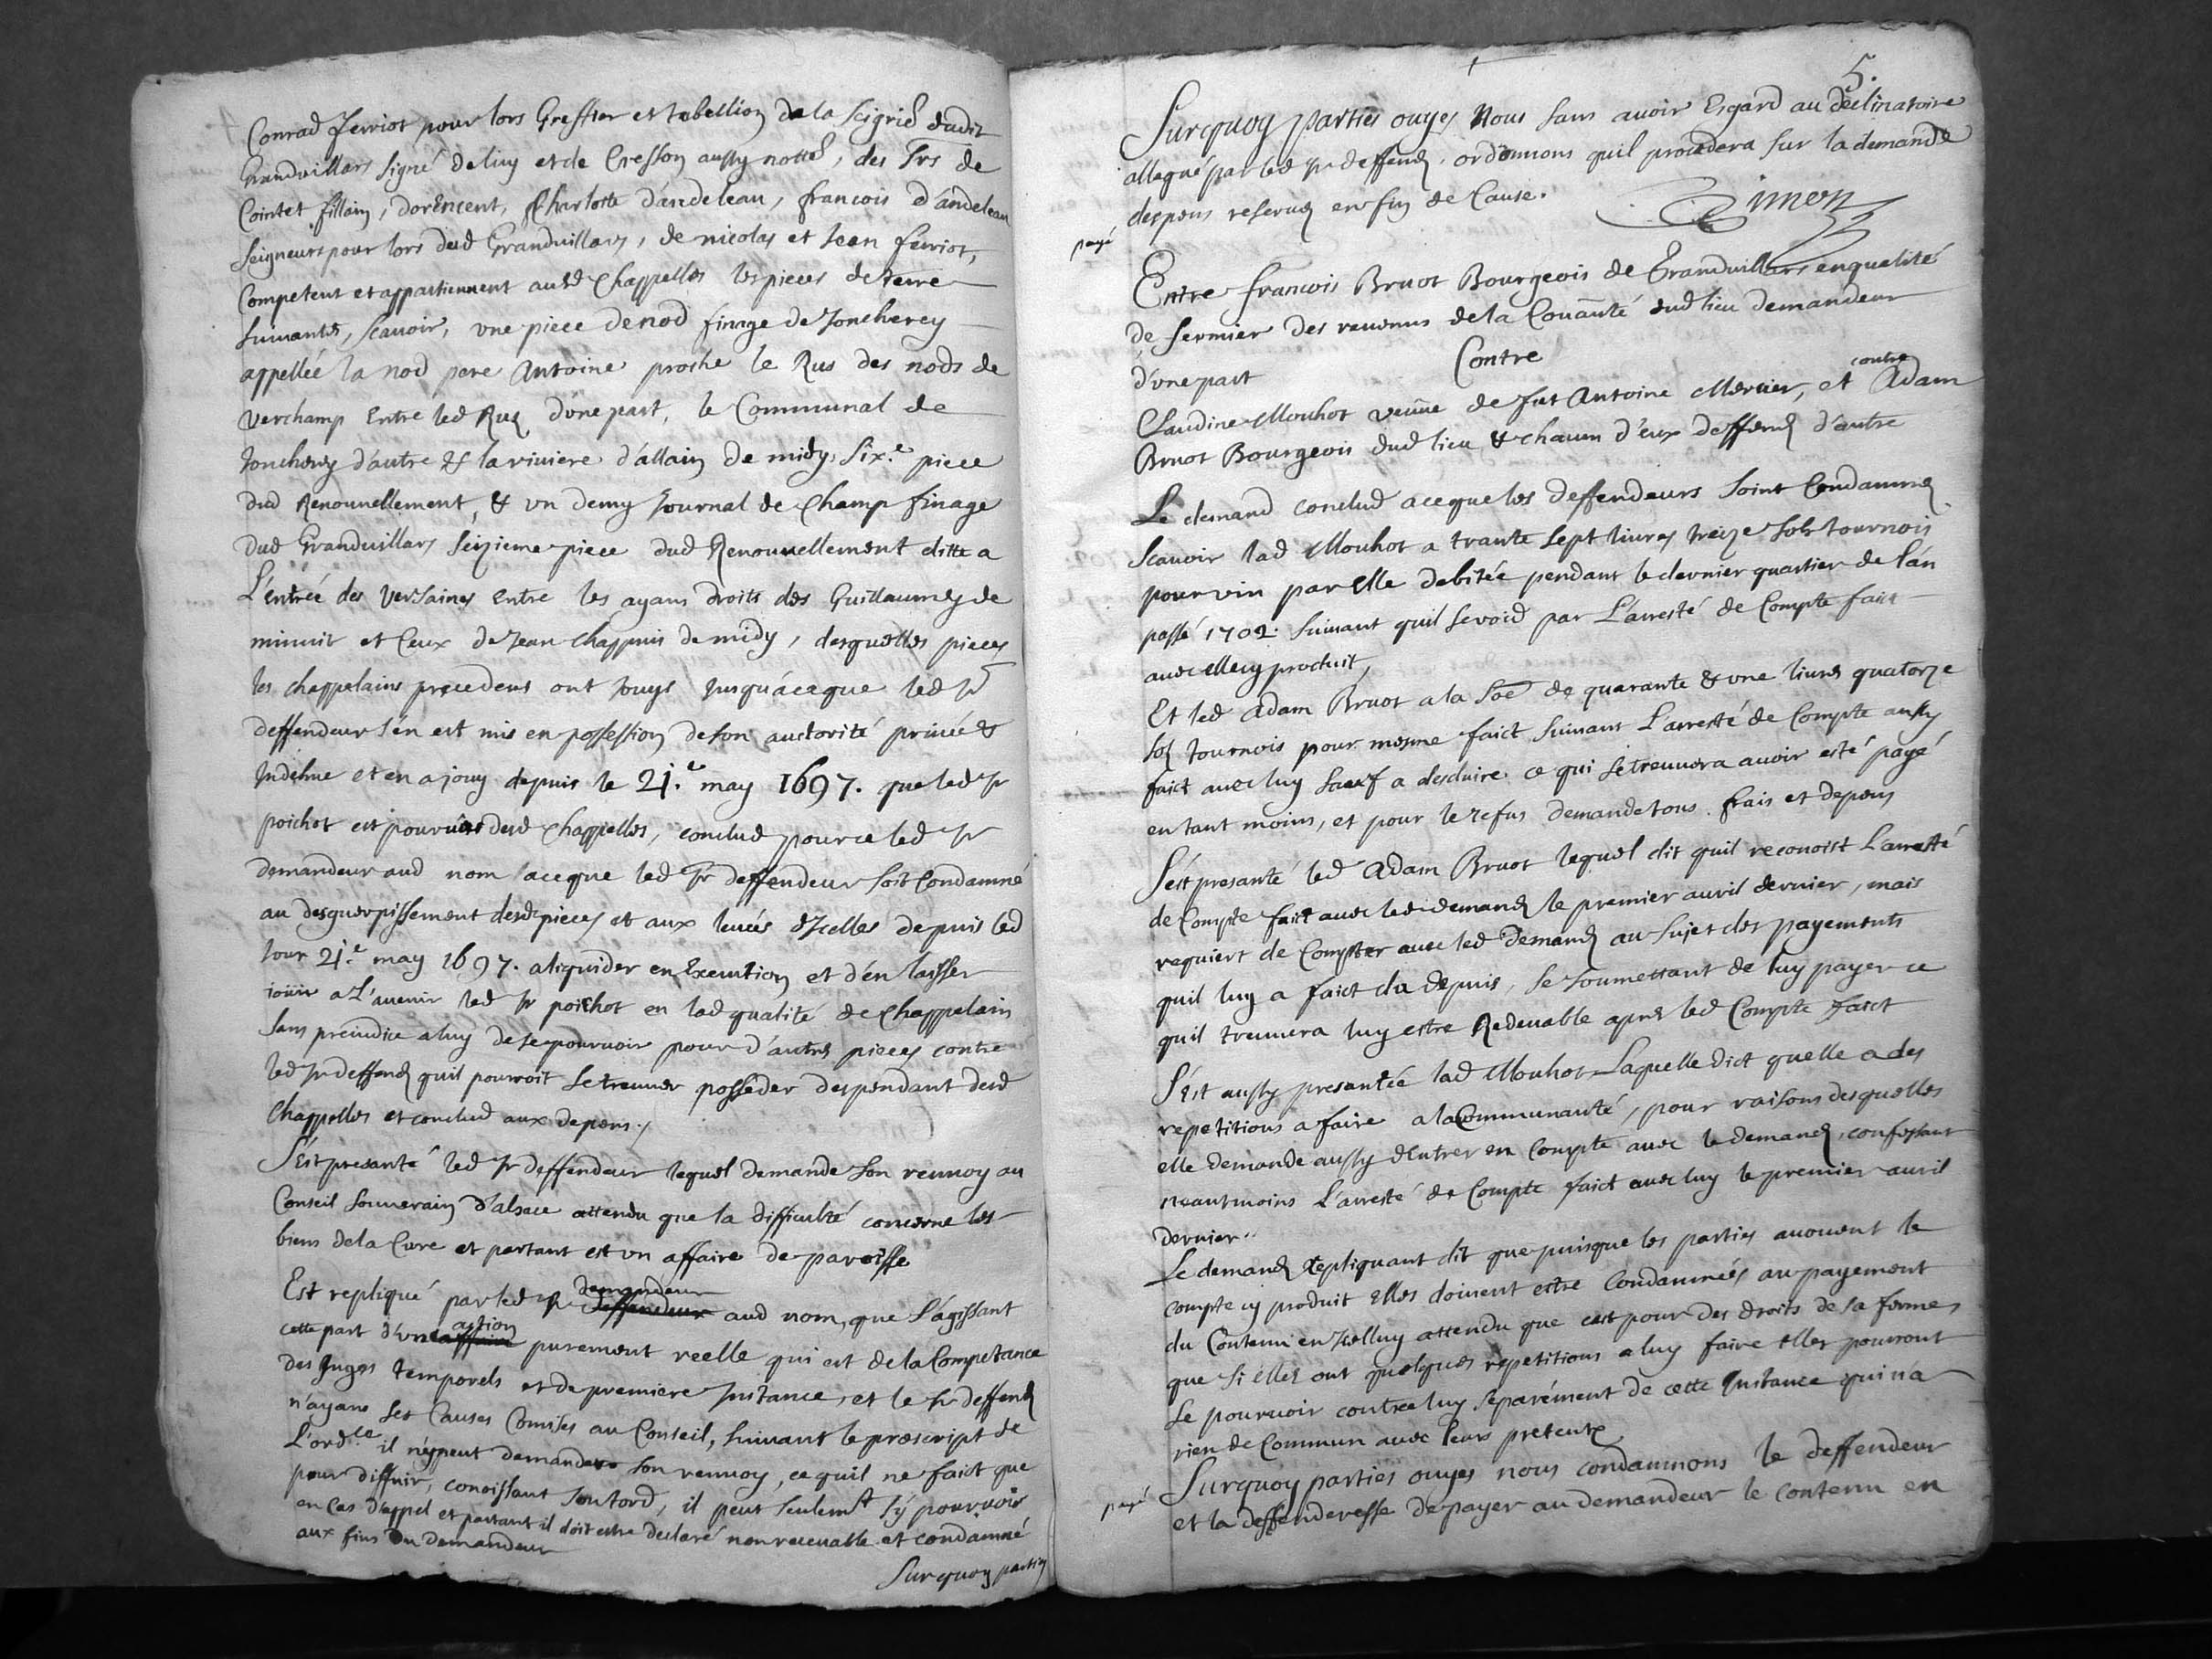 Conrad ferriot pour lors Greffier et tabellion de la Seigrie dudit
Granduillars signé de luy et de Cresson aussy nottre, des Srs de
Cointet fillain, dorencent, Charlotte d'andeleau, francois d'andeleau
Seigneurs pour lors dud Granduillars, de nicolas et Jean ferriot,
Competent et appartiennent ausd Chappelles les pieces de terre
suiuantes, scauoir, vne piece de nod finage de Joncherey
appellée la nod pere Antoine proche le Rus des nods de
Verchamp Entre led Rus d'une part, le Communal de
Joncherey d'autre & la riuiere d'allain de midy, six.e piece
dud Renouuellement, & vn demy Journal de Champ finage
dud Granduillars seizieme piece dud Renouuellement ditte a
L'entrée des Versaines entre les ayans droits des Guillaumey de
minuit et Ceux de Jean Chappuis de midy, desquelles pieces
les chappelains precedens ont Jouys Jusqu'áceque led sr
deffendeur s'en est mis en possession de son auctorité priuée &
Indehue et en a jouy depuis le 21.e may 1697. que led sr
poichot est pourvu desd Chappelles, conclud pource led sr
demandeur aud nom aceque led Sr deffendeur soit Condamné
au desguerpissement desd pieces et aux leuées d'Icelles depuis led
Jour 21.e may 1697. aliquider en Execution et d'en laisser
joüir a L'auenir led sr poichot en lad qualité de Chappelain
sans prejudice aluy de se pouruoir pour d'autres pieces contre
led sr deffend quil pourroit se treuuer posseder despendant desd
Chappelles et conclud aux depens./
S'est presanté led sr deffendeur lequel demande son renuoy au
Conseil souuerain d'alsace attendu que la difficulté concerne les
biens dela Cure et partant est vn affaire de paroisse
Est repliqué par led sr deffendeur demandeur aud nom, que s'agissant
cette part d'vne affaire action purement reelle qui est dela Competance
des Juges temporels et de premiere Instance, et le sr deffend
n'ayant ses Causes Comises au Conseil, suiuant le prescript de
L'ord.ce il n'ypeut demander son renuoy, ce quil ne faict que
pour diffuir, conoissant son tord, il peut seulemt s'y pouruoir
en Cas d'appel et partant il doit estre declaré non receuable et condamné
aux fins du demandeur
Surquoy parties
5.
Surquoy parties ouyes Nous sans auoir Esgard au declinatoire
allegué par led sr deffend. ordonnons quil procedera sur la demande
despens reserués en fin de Cause.
Simon
payé
Entre francois Bruot Bourgeois de Granduillars enqualité
de fermier des reuenus dela Cou̅a̅uté dud lieu demandeur
d'vne part
Contre
Claudine Mouhot veuue de fut Antoine Mercier, et contre Adam
Bruot Bourgeois dud lieu & chacun d'eux deffend d'autre
Le demand conclud aceque les deffendeurs soint Condamnés
Scauoir lad Mouhot a trante sept liures treize sols tournois
pour vin par Elle debitée pendant le dernier quartier de l'an
passé 1702. suiuant quil se void par L'arresté de Compte faict
auec elle cy produit,
Et led adam Bruot a la Soe de quarante & vne liures quatorze
sols tournois pour mesme faict suiuant L'arresté de Compte aussy
faict auec luy sauf a desduire ce qui se treuuera auoir esté payé
en tant moins, et pour le refus demande tous frais et depens
S'est presanté led Adam Bruot lequel dit quil reconoist L'arresté
de Compte faict auec led demand le premier auril dernier, mais
requiert de Compter auec led Demand au sujet des payements
quil luy a faict du depuis, se soumettant de luy payer ce
quil treuuera luy estre Redeuable apres led Compte faict
S'est aussy presantée lad Mouhot Laquelle dict quelle a des
repetitions a faire a la Communauté, pour raisons desquelles
elle demande aussy d'Entrer en Compte auec le demand, confessant
neantmoins L'arresté de Compte faict auec luy le premier auril
dernier..
Le demand Repliquant dit que puisque les parties auouent le
compte cy produit Elles doiuent estre Condamnées au payement
du Contenu en Icelluy attendu que cest pour des droits de sa ferme,
que si elles ont quelques repetitions a luy faire elles pourront
se pouruoir contre luy separément de cette Instance qui n'a
rien de Commun auec leurs pretentx
payé
Surquoy parties ouyes nous condamnons le deffendeur
et la deffenderesse de payer au demandeur le contenu en